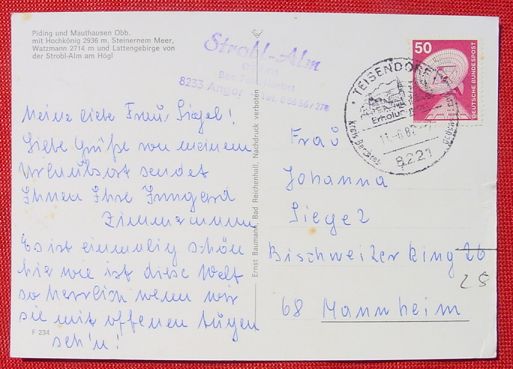 Piding und Mauthausen Obb.
mit Hochkönig 2936 m. Steinernem Meer,
Watzmann 2714 m und Lattengebirge von
der Strobl-Alm am Högl
Strobl-Alm
8233 Anger
Meine liebe Frau Siegel!
Liebe Grüße von meinem
Urlaubsort sendet
Ihnen Ihre Irmgard
Zimmermann
Es ist einmalig schön
hier wie ist diese Welt
so herrlich wenn wir
sie mit offenen Augen
seh'n!
F 234
Ernst Baumann, Bad Reichenhall, Nachdruck verboten
50
DEUTSCHE BUNDESPOST
TEISENDORF
Erholung
8221
Frau
Johanna
Siegel
Bischweiler Ring 26
25
68 Mannheim